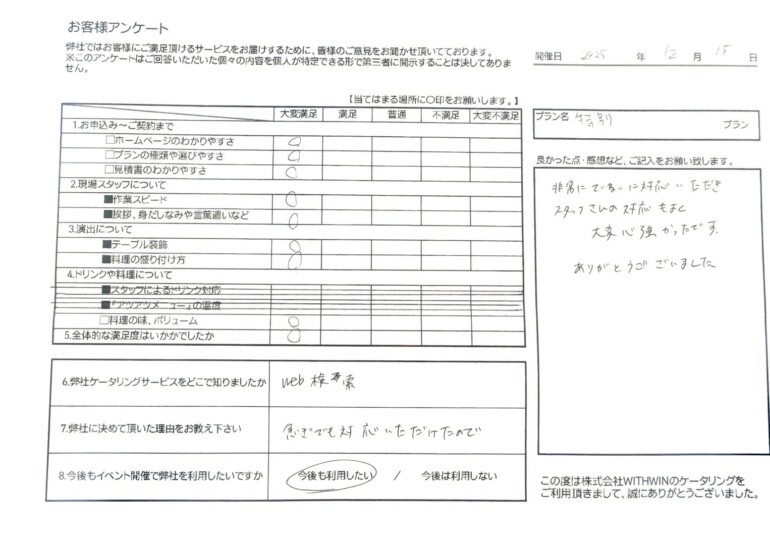 お客様アンケート
弊社ではお客様にご満足頂けるサービスをお届けするために、皆様のご意見をお聞かせ頂いてております。
※このアンケートはご回答いただいた個々の内容を個人が特定できる形で第三者に開示することは決してありま
せん。
開催日 2025 年 12 月 15 日
【当てはまる場所に○印をお願いします。】
大変満足 満足 普通 不満足 大変不満足
1.お申込み～ご契約まで
□ホームページのわかりやすさ
□プランの種類や選びやすさ
□見積書のわかりやすさ
2.現場スタッフについて
■作業スピード
■挨拶、身だしなみや言葉遣いなど
3.演出について
■テーブル装飾
■料理の盛り付け方
4.ドリンクや料理について
■スタッフによるドリンク対応
■『アツアツメニュー』の温度
□料理の味、ボリューム
5.全体的な満足度はいかかでしたか
プラン名 特別 プラン
良かった点・感想など、ご記入をお願い致します。
非常にていねいに対応いただき
スタッフさんの対応もよく
大変心強かったです.
ありがとうございました
6.弊社ケータリングサービスをどこで知りましたか web検索
7.弊社に決めて頂いた理由をお教え下さい 急ぎでも対応いただけたので
8.今後もイベント開催で弊社を利用したいですか 今後も利用したい / 今後は利用しない
この度は株式会社WITHWINのケータリングを
ご利用頂きまして、誠にありがとうございました。